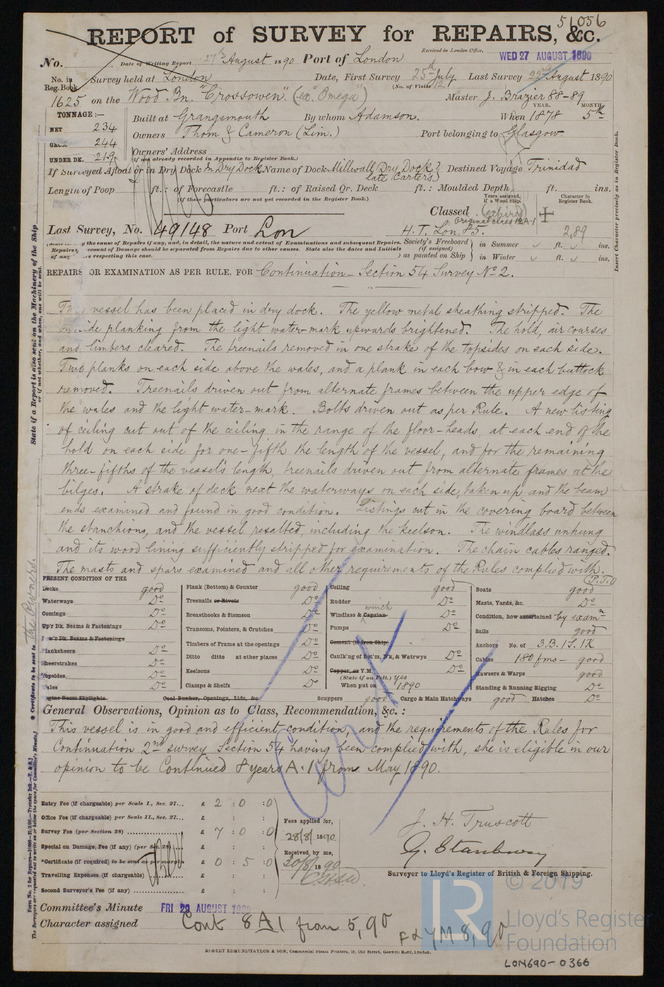 51056
REPORT of SURVEY for REPAIRS, &c.
Received in London Office,
No. Date of Writing Report 27th August 1890 Port of London WED 27 AUGUST 1890
No. in Reg. Book Survey held at London Date, First Survey 25th July Last Survey 22nd August 1890
(No. of Visits 12)
1625 on the Wood Bn. "Crossowen" (ex "Omega") Master J. Brazier 88-89
TONNAGE:— YEAR. MONTH.
Built at Grangemouth By whom Adamson. When 1878 5th
NET 234
Owners Thom & Cameron (Lim.) Port belonging to Glasgow
GROSS 244
Owners' Address
UNDER DK. 219
(If not already recorded in Appendix to Register Book.)
If Surveyed Afloat or in Dry Dock In Dry Dock Name of Dock Millwall (Dry Dock late Carters) Destined Voyage Trinidad
Length of Poop ft.: of Forecastle ft.: of Raised Qr. Deck ft.: Moulded Depth ft. ins.
(If these particulars are not yet recorded in the Register Book.)
Years assigned, if a Wood Ship. Character in Register Book.
Classed (expired)
Original class 12 A.1
Last Survey, No. 49148 Port Lon H.T. Lon. 85. 2,89
Society's Freeboard (if assigned) as painted on Ship in Summer ft. ins.
in Winter ft. ins.
REPAIRS OR EXAMINATION AS PER RULE, FOR Continuation Section 54 Survey No. 2.
The vessel has been placed in dry dock. The yellow metal sheathing stripped. The
outside planking from the light water-mark upwards brightened. The hold, air courses
and limbers cleared. The treenails removed in one strake of the topsides on each side.
Two planks on each side above the wales, and a plank in each bow & in each buttock
removed. Treenails driven out from alternate frames between the upper edge of
the wales and the light water-mark. Bolts driven out as per Rule. A new listing
of ceiling cut out of the ceiling in the range of the floor-heads, at each end of the
hold on each side for one-fifth the length of the vessel, and for the remaining
three-fifths of the vessel's length, treenails driven out from alternate frames at the
bilges. A strake of deck next the waterways on each side, taken up and the beam
ends examined and found in good condition. Listings cut in the covering board between
the stanchions, and the vessel resalted, including the keelson. The windlass unhung
and its wood lining sufficiently stripped for examination. The chain cables ranged.
The masts and spars examined and all other requirements of the Rules complied with.
(P.T.O)
PRESENT CONDITION OF THE
Decks good Plank (Bottom) & Counter good Ceiling good Boats good
Waterways Do Treenails or Rivets Do Rudder Do Masts, Yards, &c. Do
Comings Do Breasthooks & Stemson Do Windlass & Capstan winch Do Condition, how ascertained by exam.
Upr Dk. Beams & Fastenings Do Transoms, Pointers, & Crutches Do Pumps Do Sails good
Lowr Dk. Beams & Fastenings Timbers of Frame at the openings Do Cement (if Iron Ship) Anchors No. of 3.B. 1S. 1K
Planksheers Do Ditto ditto at other places Do Caulk'ng of Bot'm, D'k, & Watrwys Do Cables 180 fms — good
Sheerstrakes Do Keelsons Do Copper, or Y.M. Do Hawsers & Warps good
Topsides Do Clamps & Shelfs Do (State if on Felt.) yes Standing & Running Rigging Do
Wales Do When put on 1890
Engine Room Skylights Coal Bunker, Openings, Lids, &c. Scuppers good Cargo & Main Hatchways good Hatches Do
General Observations, Opinion as to Class, Recommendation, &c.:
This vessel is in good and efficient condition, and the requirements of the Rules for
Continuation 2nd survey Section 54 having been complied with, she is eligible in our
opinion to be Continued 8 years A.1 from May 1890.
Cont
Entry Fee (if chargeable) per Scale I., Sec. 27... £ 2 : 0 : 0
Office Fee (if chargeable) per Scale II., Sec. 27... £ : :
Survey Fee (per Section 28) £ 7 : 0 : 0
Special on Damage, Fee (if any) (per Sec. 28) £ : :
*Certificate (if required) to be sent as per margin £ 0 : 5 : 0
Travelling Expenses (if chargeable) £ : :
Second Surveyor's Fee (if any) £ : :
Fees applied for,
28/8/1890.
Received by me,
J. H. Truscott
G. Stanbury
Surveyor to Lloyd's Register of British & Foreign Shipping.
Committee's Minute FRI 29 AUGUST 1890
Character assigned Cont 8 A 1 from 5,90
F & YM 8,90
© 2019
LR
Lloyd's Register
Foundation
LON690-0366